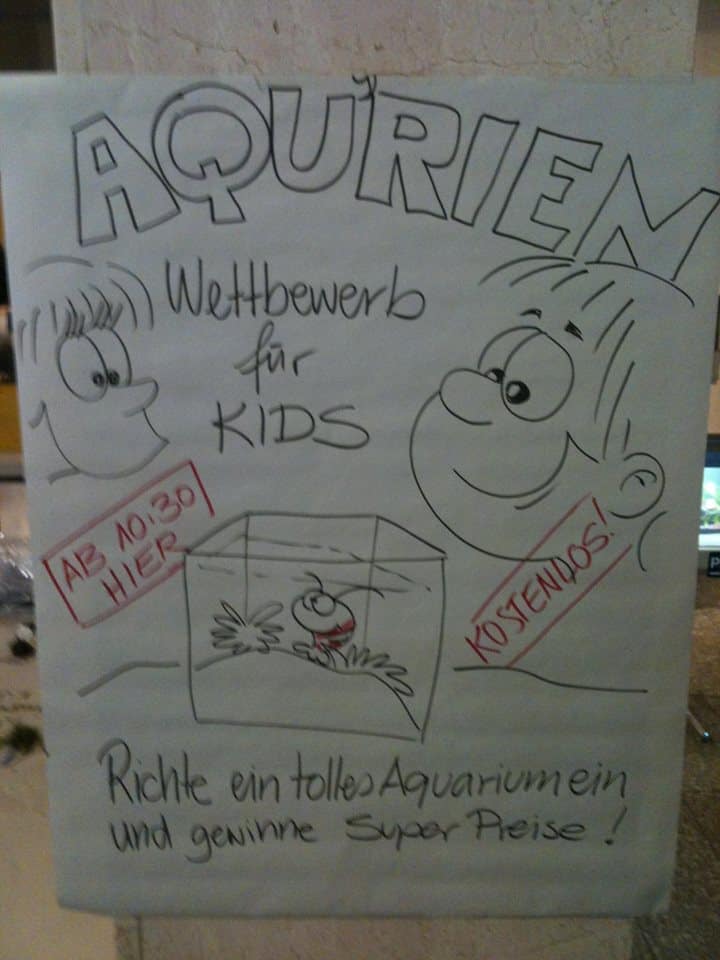 AQU'RIEM
Wettbewerb
für
KIDS
AB 10:30
HIER
KOSTENLOS!
Richte ein tolles Aquarium ein
und gewinne Super Preise!